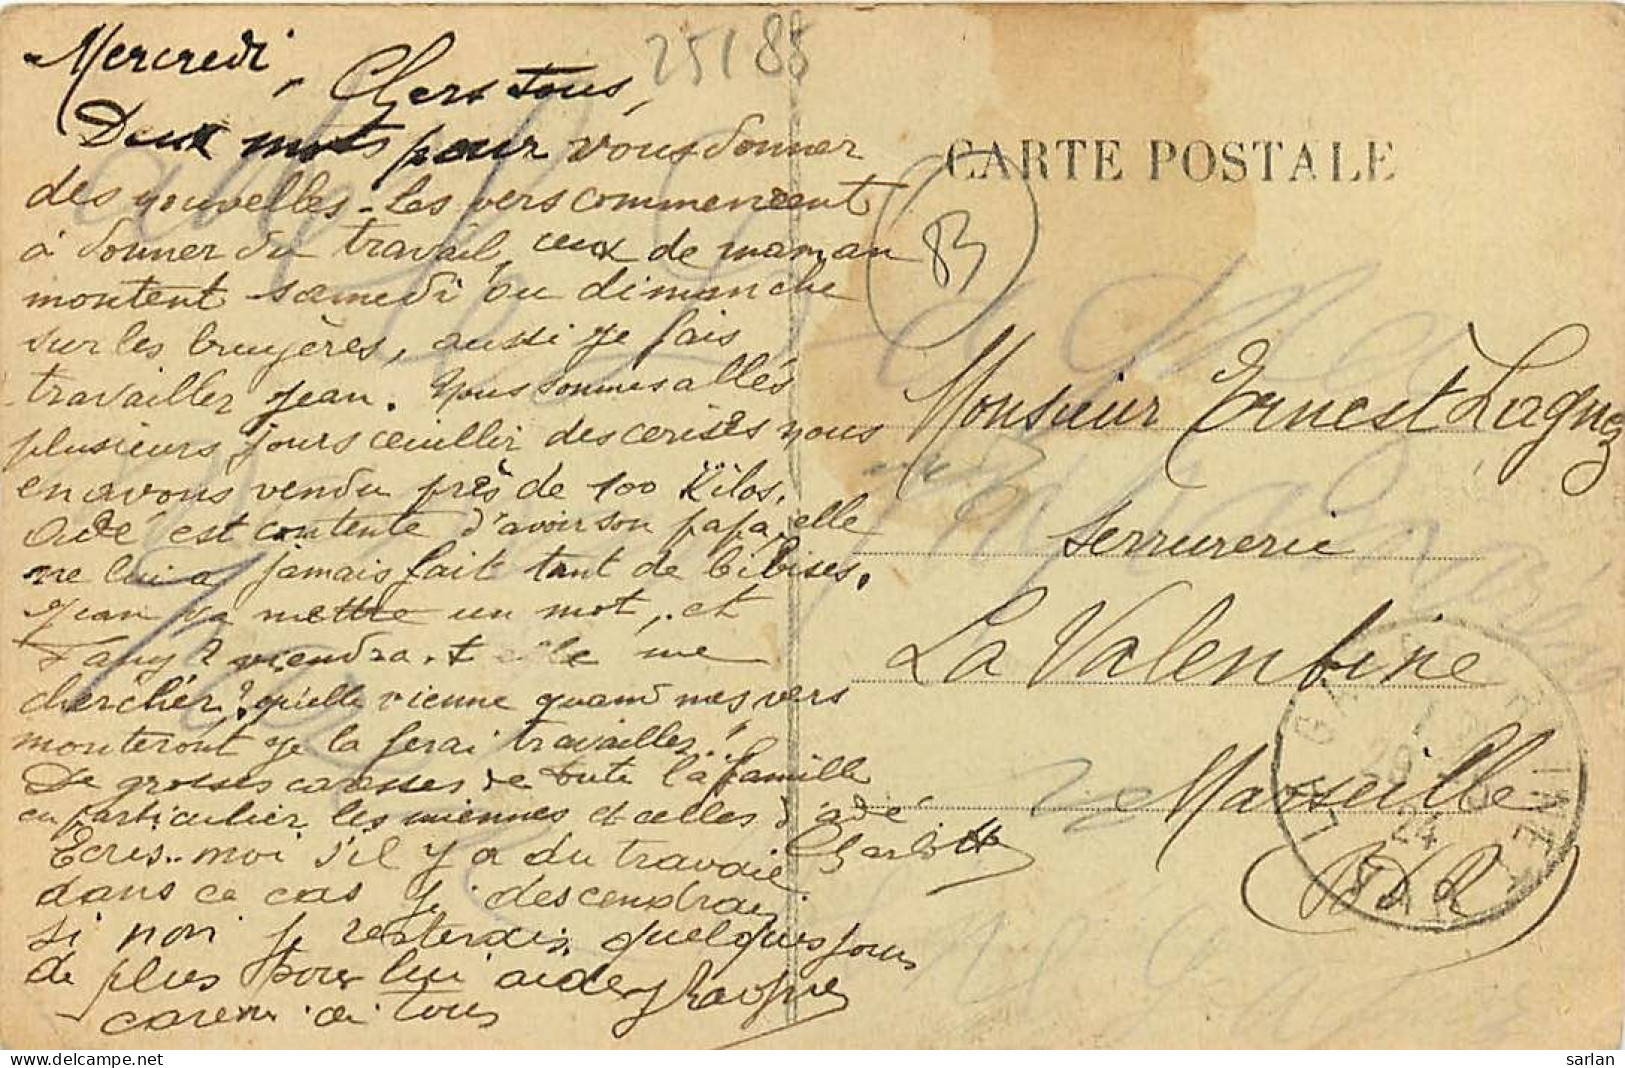 25188
Mercredi
Chers tous,
Deux mots pour vous donner
des nouvelles. Les vers commencent
à donner du travail, ceux de maman
montent samedi ou dimanche
sur les bruyères, aussi je fais
travailler Jean. Nous sommes allés
plusieurs jours ceuillir des cerises nous
en avons vendu près de 100 Kilos.
Adé est contente d'avoir son papa, elle
ne lui a jamais fait tant de bibises.
Jean va mettre un mot, et
Fany? viendra-t-elle me
chercher? qu'elle vienne quand mes vers
monteront je la ferai travailler!
De grosses caresses de toute la famille
en particulier les miennes et celles d'adé
Charlotte
Ecris-moi s'il y a du travail
dans ce cas je descendrai
si non je resterais quelques jours
de plus pour lui aider
à tous
CARTE POSTALE
83
Monsieur Ernest Lagnez
Serrurerie
La Valentine
Marseille
(B d R)
24
Sarlan